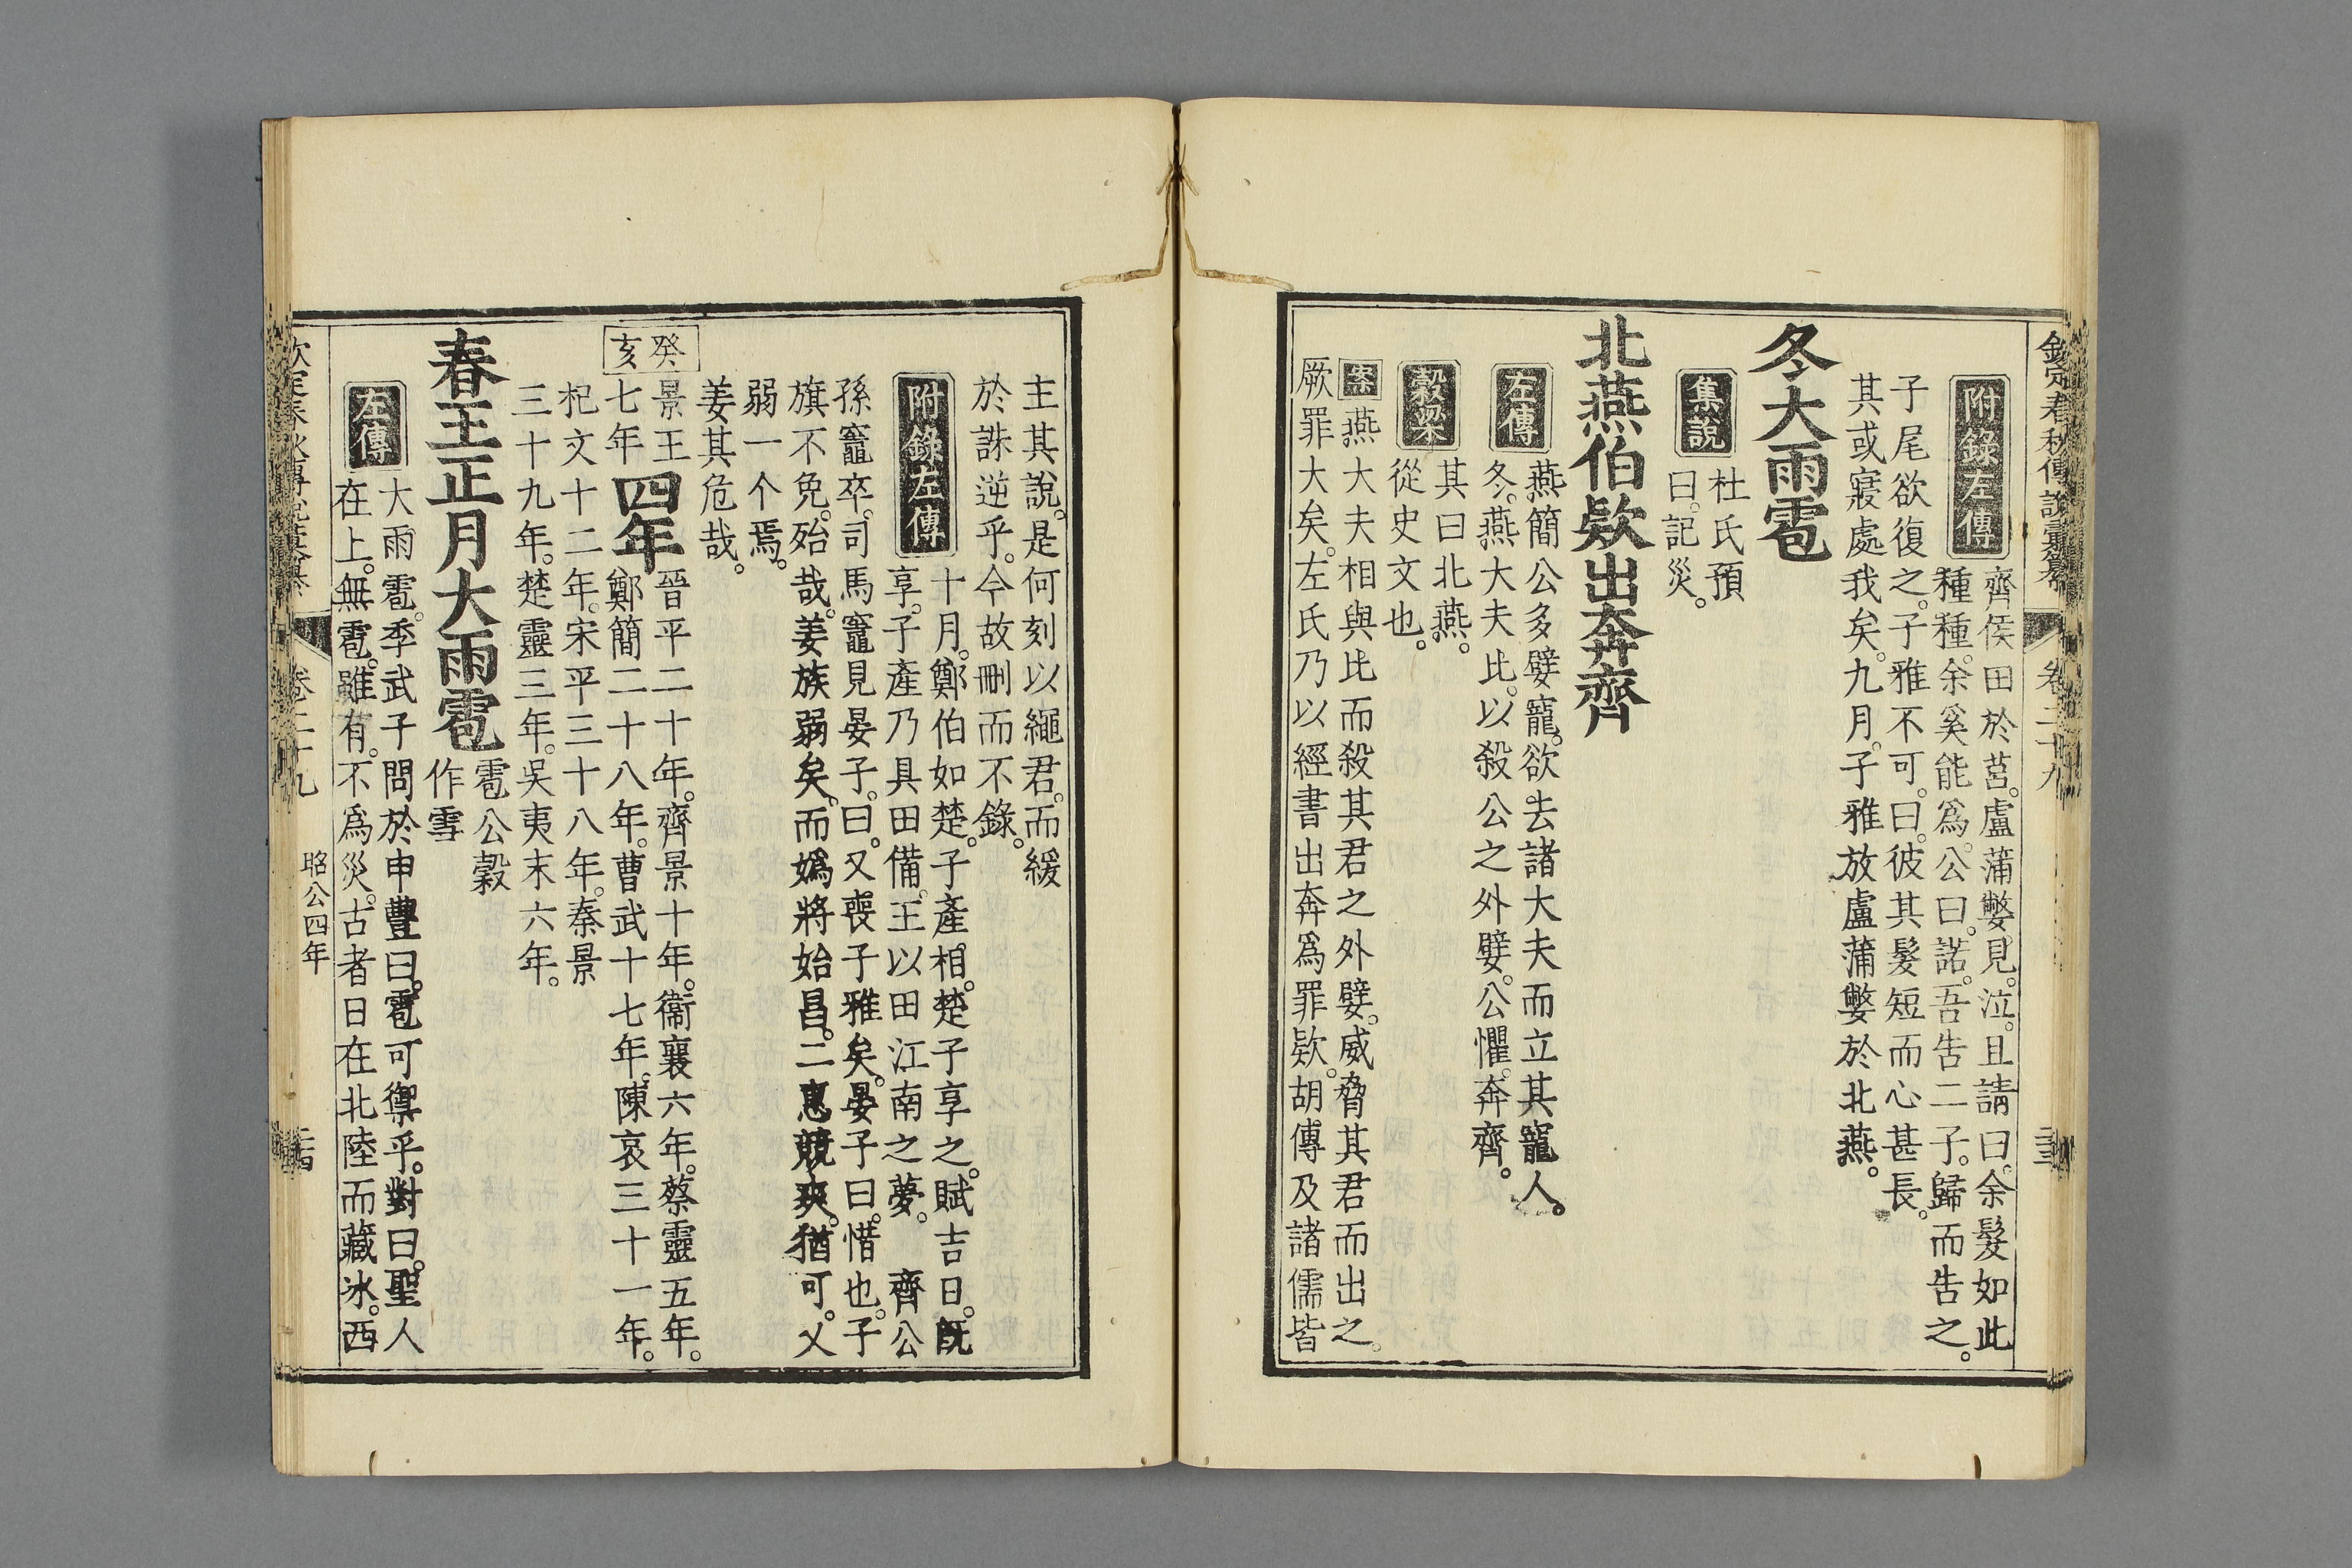 欽定春秋傳說彙纂 卷二十九
附錄左傳
齊侯田於莒。盧蒲嫳見。泣。且請曰。余髮如此
種種。余奚能為。公曰。諾。吾告二子。歸而告之。
子尾欲復之。子雅不可。曰。彼其髮短而心甚長。
其或寢處我矣。九月。子雅放盧蒲嫳於北燕。
冬大雨雹
集說
杜氏預
曰。記災。
北燕伯欵出奔齊
左傳
燕簡公多嬖寵。欲去諸大夫而立其寵人。
冬。燕大夫比。以殺公之外嬖。公懼。奔齊。
穀梁
其曰北燕。
從史文也。
案 燕大夫相與比而殺其君之外嬖。威脅其君而出之。
厥罪大矣。左氏乃以經書出奔為罪欵。胡傳及諸儒皆
主其說。是何刻以繩君。而緩
於誅逆乎。今故刪而不錄。
附錄左傳
十月。鄭伯如楚。子產相。楚子享之。賦吉日。既
享。子產乃具田備。王以田江南之夢。 齊公
孫竈卒。司馬竈見晏子。曰。又喪子雅矣。晏子曰。惜也。子
旗不免。殆哉。姜族弱矣。而媯將始昌。二惠競爽。猶可。又
弱一个焉。
姜其危哉。
癸亥
景王
七年
四年
晉平二十年。齊景十年。衞襄六年。蔡靈五年。
鄭簡二十八年。曹武十七年。陳哀三十一年。
杞文十二年。宋平三十八年。秦景
三十九年。楚靈三年。吳夷末六年。
春王正月大雨雹
雹公穀
作雪
左傳
大雨雹。季武子問於申豐曰。雹可禦乎。對曰。聖人
在上。無雹。雖有。不為災。古者日在北陸而藏冰。西
欽定春秋傳說彙纂 卷二十九 昭公四年